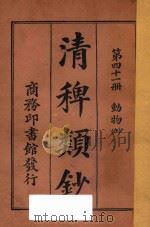 第四十一冊 動物下
清稗類鈔
商務印書館發行